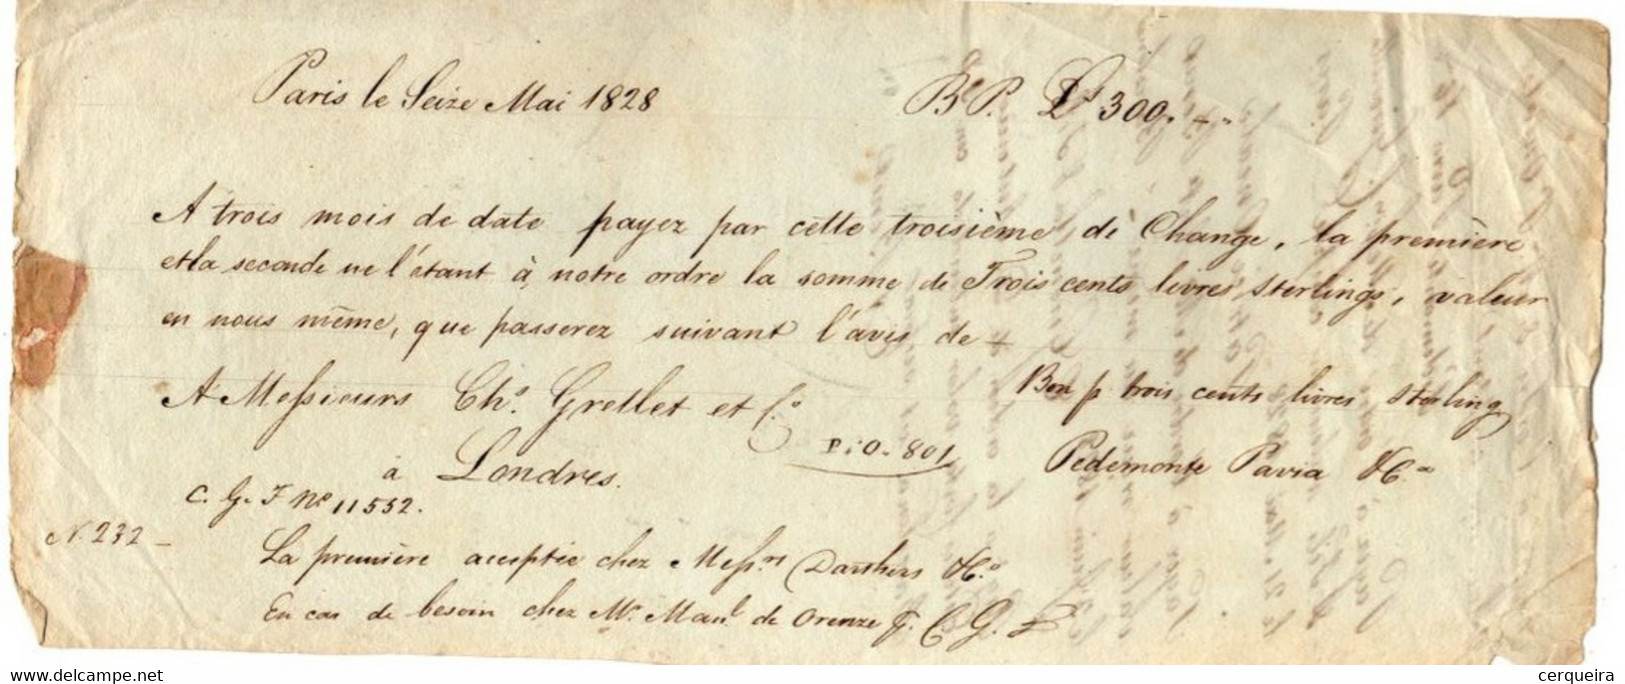 Paris le Seize Mai 1828 B. P. L 300.
A trois mois de date payez par cette troisième de Change, la première
et la seconde ne l'étant à notre ordre la somme de Trois cents livres Sterlings, valeur
en nous même, que passerez suivant l'avis de
A Messieurs Chs. Grellet et Co Bon p trois cents livres Sterling
P:O. 801 Pedemonte Pavia &Co
à Londres.
C. G. F No 11552.
N. 232
La première acceptée chez Messrs &Co
En cas de besoin chez Mr. Manl. de Orenze F. C. G.
www.delcampe.net cerqueira